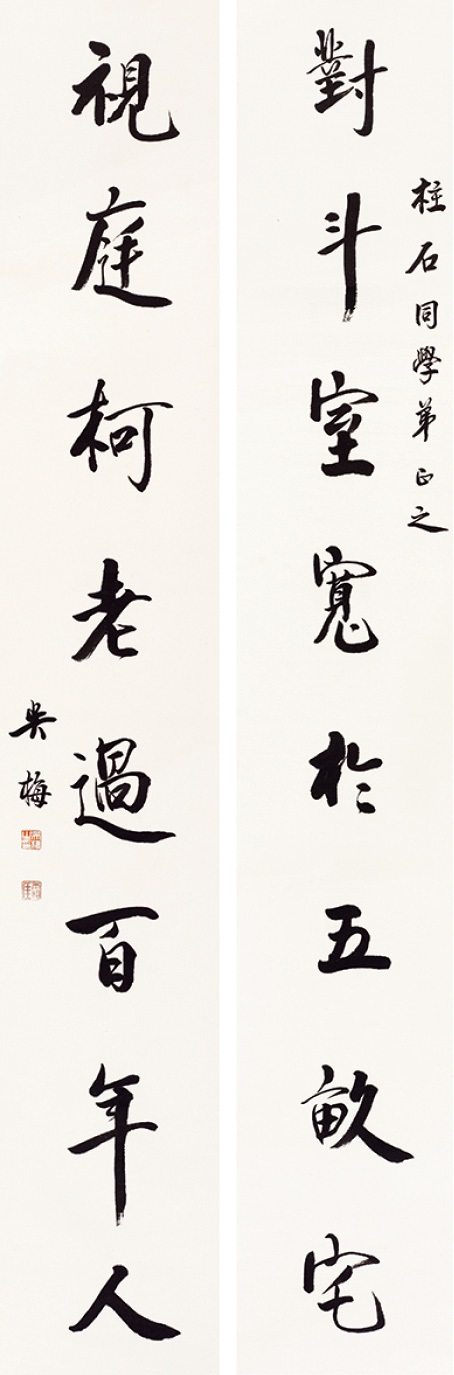 柱石同學弟正之
對斗室寬於五畝宅
視庭柯老過百年人
吳梅